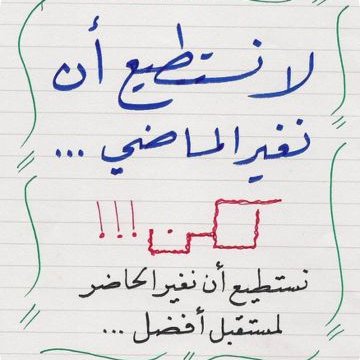 لا نستطيع أن
نغير الماضي ...
لكن !!!
نستطيع أن نغير الحاضر
لمستقبل أفضل ...